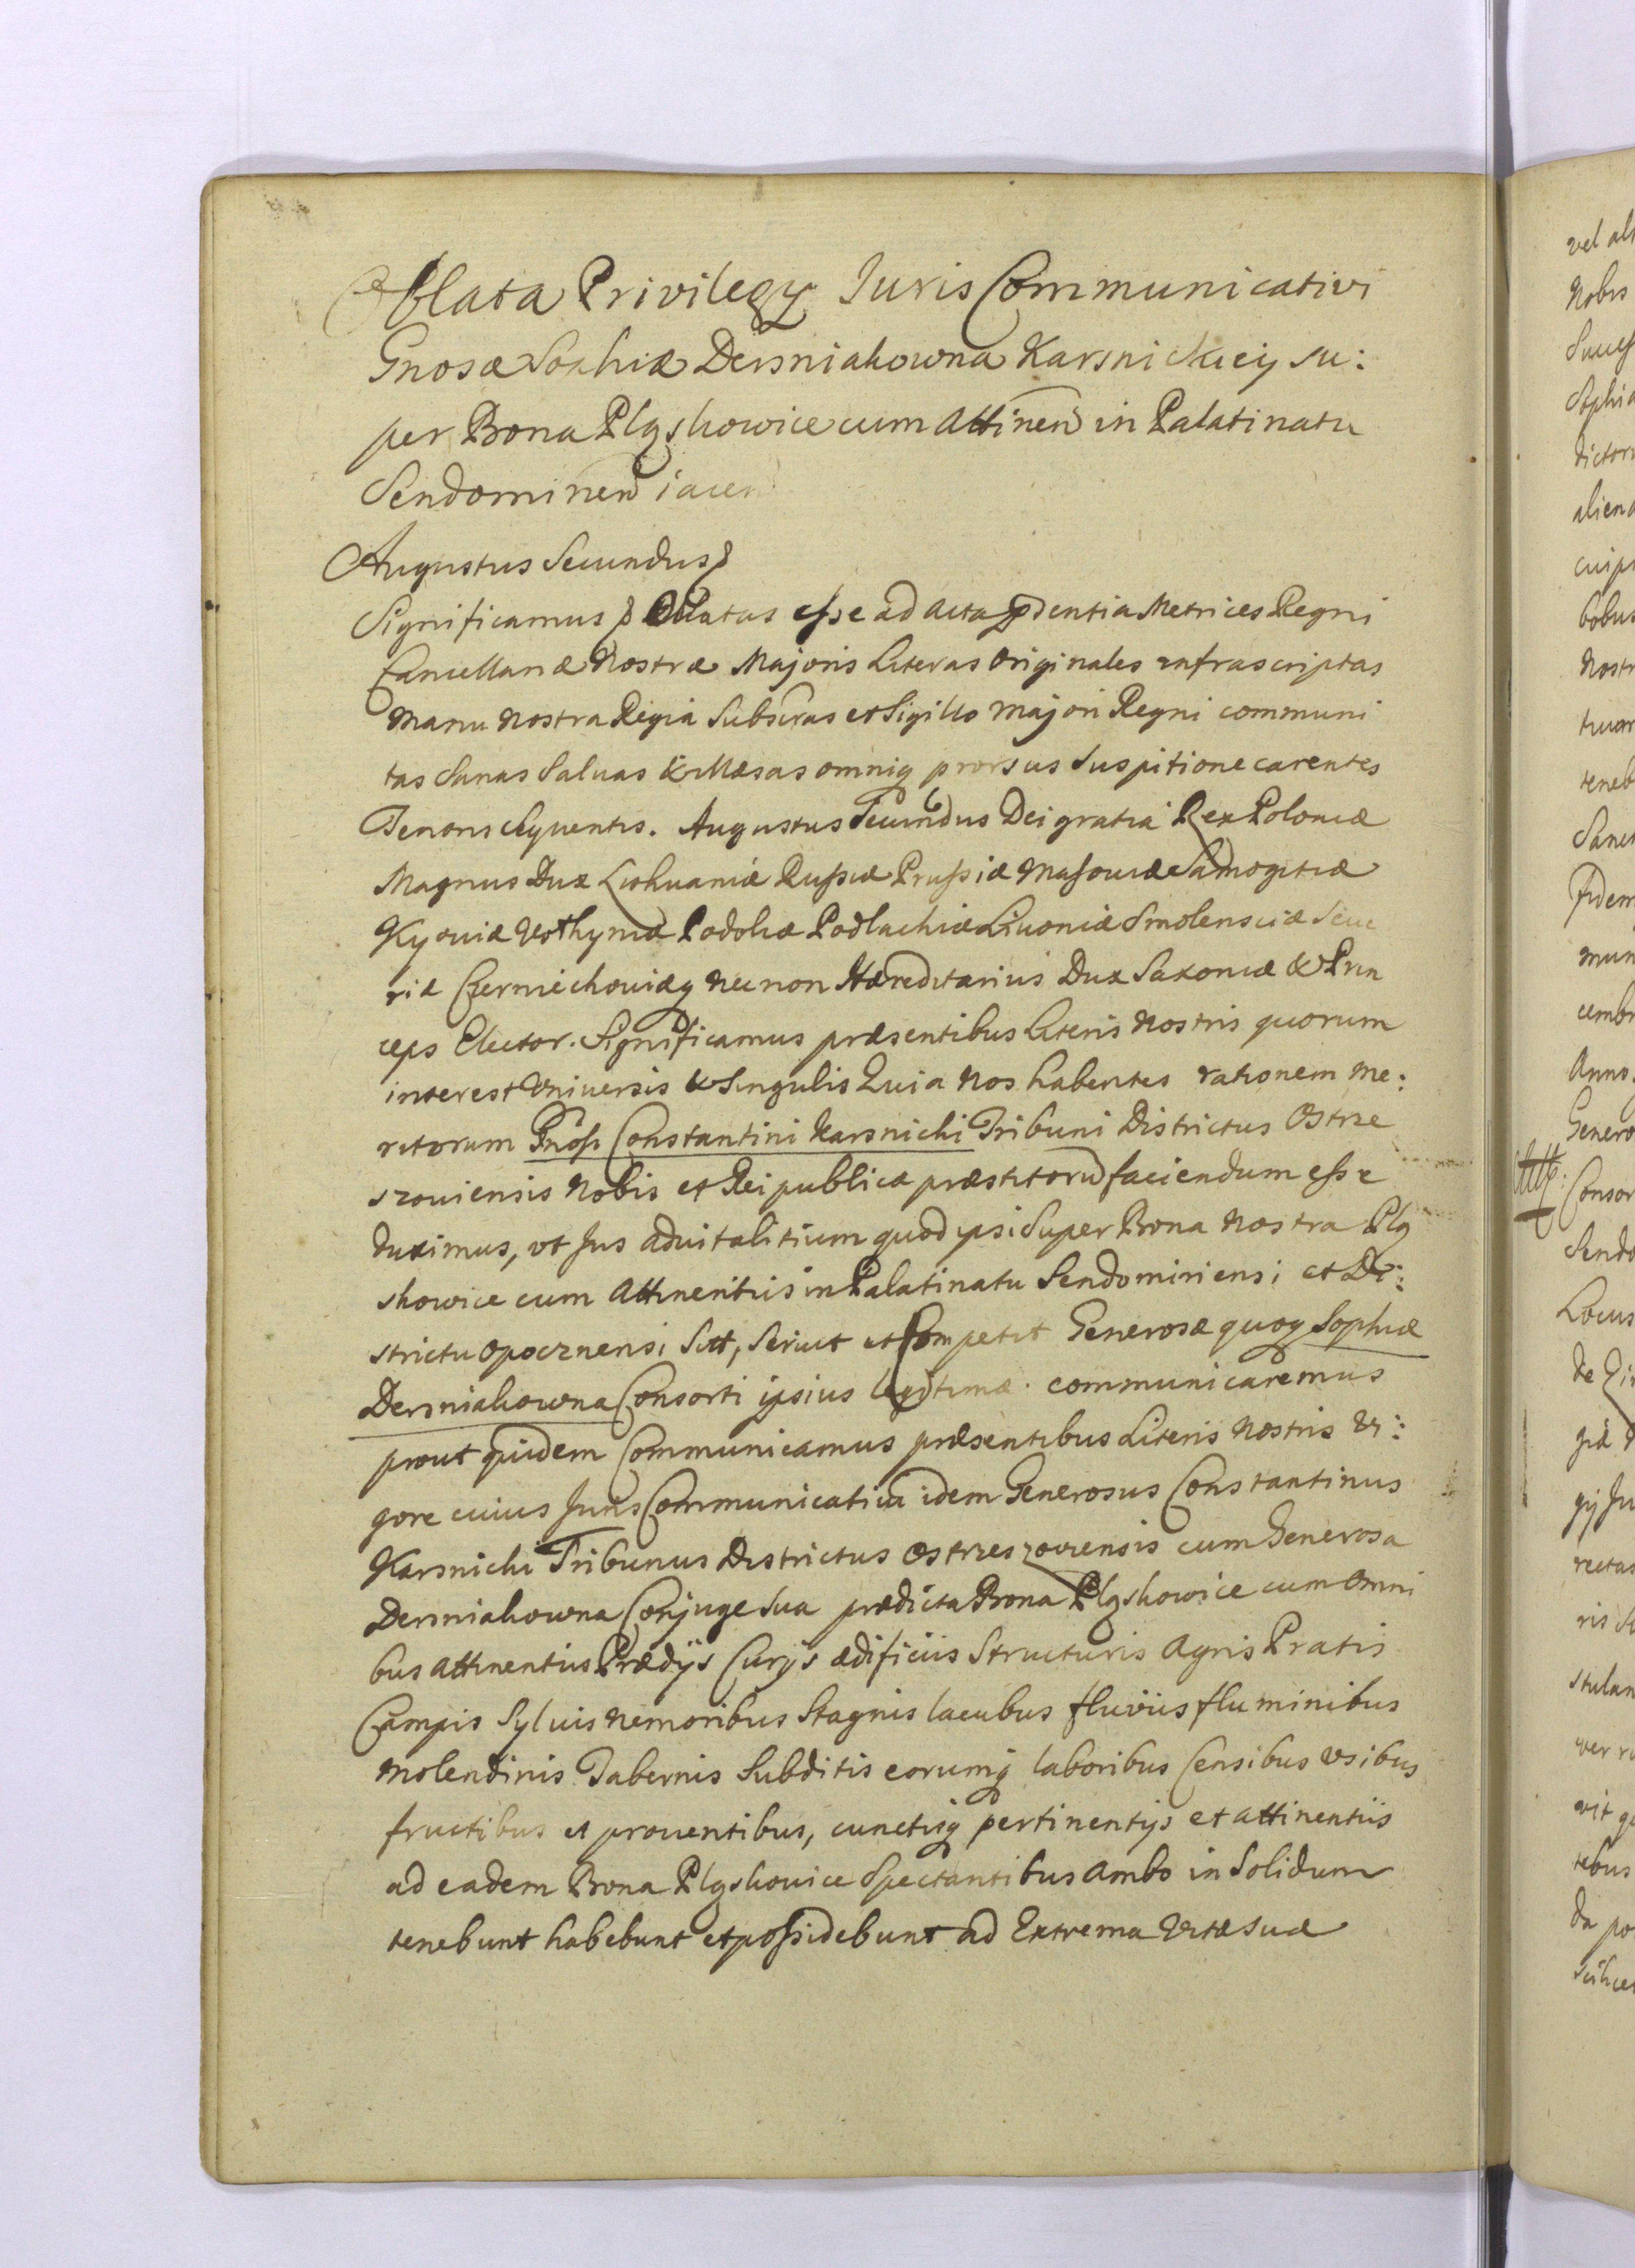 Oblata Privilegy Iuris Communicativi
Gnosæ Sophiæ Dersniakowna Karsnickiey su:
per Bona Plqskowice cum Attinen in Palatinatu
Sendomirien iacen
Augustus Secundus
Significamus Oblatas esse ad Acta prntia Metrices Regni
Cancellariæ Nostræ Majoris Literas Originales infrascriptas
Manu Nostra Regia Subscras et Sigillo majori Regni communi
tas Sanas Saluas & illæsas omniq prorsus Suspitione carentes
Tenoris Sequentis. Augustus Secundus Dei gratia Rex Poloniæ
Magnus Dux Lithuaniæ Russiæ Prussiæ Masouiæ Samogitiæ
Kyouiæ Volhyniæ Podoliæ Podlachiæ Liuoniæ Smolensciæ Seue
riæ Czerniechouiæq necnon Hæreditarius Dux Saxoniæ & Prin
ceps Elector. Significamus præsentibus Literis Nostris quorum
interest Vniuersis & Singulis Quia Nos habentes rationem me:
ritorum Gnosi Constantini Karsnicki Tribuni Districtus Ostrze
szouiensis Nobis et Reipublicæ præstitorū faciendum esse
duximus, vt Jus aduitalitium quod ipsi Super Bona Nostra Plq
skowice cum Attinentiis in Palatinatu Sendomiriensi et Di:
strictu Opocznensi Sitt, Seruit et Competit Generosæ quoq Sophiæ
Dersniakowna Consorti ipsius legitimæ. communicaremus
prout quidem Communicamus præsentibus Literis Nostris Vi:
gore cuius Juris Communicatiui idem Generosus Constantinus
Karsnicki Tribunus Districtus Ostrzeszouiensis cum Generosa
Dersniakowna Conjuge sua prædicta Bona Plqskowice cum Omni
bus Attinentiis Prædijs Curijs ædificiis Structuris Agris Pratis
Campis Syluis Nemoribus Stagnis lacubus fluviis fluminibus
Molendinis Tabernis Subditis eorumq laboribus Censibus Vsibus
fructibus et prouentibus, cunctisq pertinentijs et attinentiis
ad eadem Bona Plqskouice Spectantibus Ambo in Solidum
tenebunt habebunt et possidebunt ad Extrema Vitæ Suæ